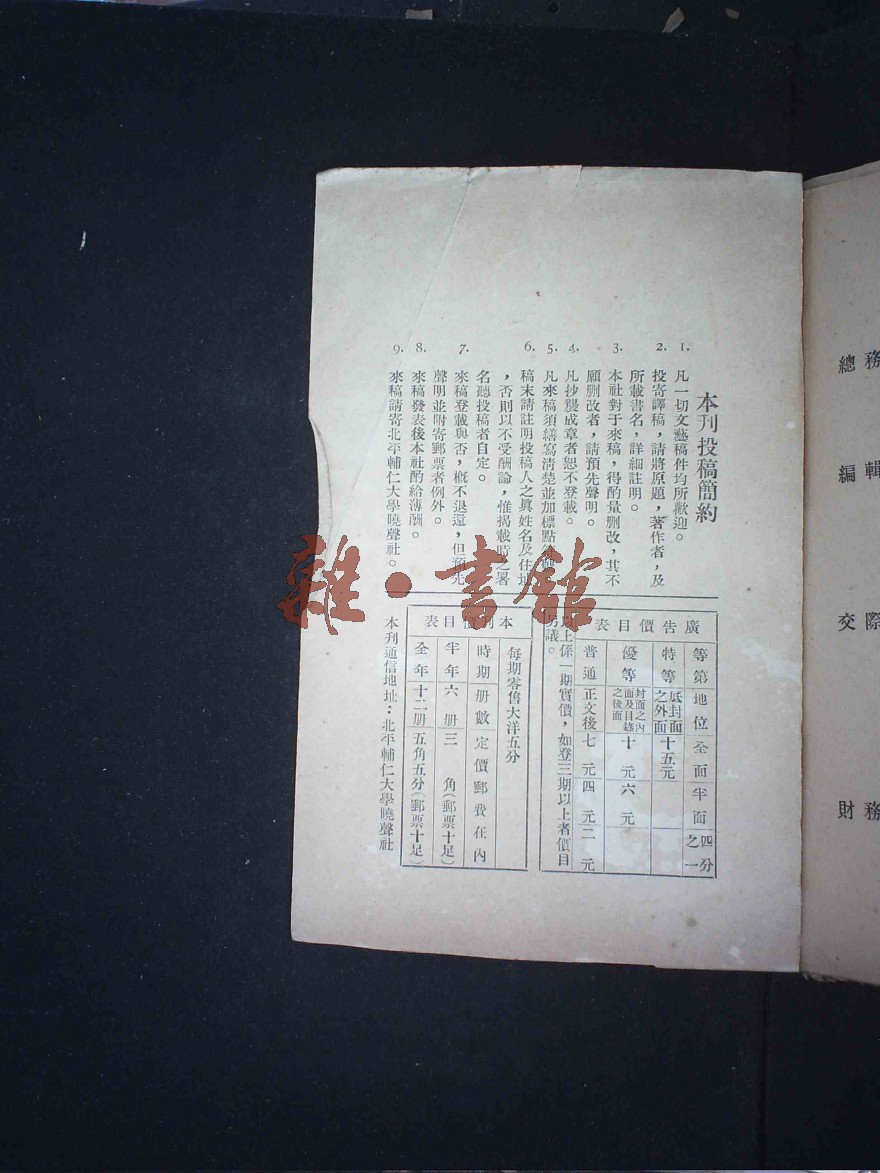 本刊投稿簡約
1. 凡一切文藝稿件均所歡迎。
2. 投寄譯稿，請將原題，著作者，及
所載書名，詳細註明。
3. 本社對于來稿，得酌量删改，其不
願删改者，請預先聲明。
4. 凡抄襲成章者恕不登載。
5. 凡來稿須繕寫清楚並加標點符號
6. 稿末請註明投稿人之眞姓名及住址
，否則以不受酬論，惟揭載時之署
名聽投稿者自定。
7. 來稿登載與否，槪不退還，但預先
聲明並附寄郵票者例外。
8. 來稿發表後本社酌給薄酬。
9. 來稿請寄北平輔仁大學曉聲社。
廣告價目表
等第 地位 全面 半面 四分之一
特等 底封面之外面 十五元
優等 封面之內面及目錄之後面 十元 六元
普通 正文後 七元 四元 二元
以上係一期實價，如登三期以上者價目
另議。
本刊價目表
每期零售大洋五分
時期 册數 定價郵費在內
半年 六册 三角(郵票十足)
全年 十二册 五角五分(郵票十足)
本刊通信地址：北平輔仁大學曉聲社
總務
編輯
交際
財務
雜·書館